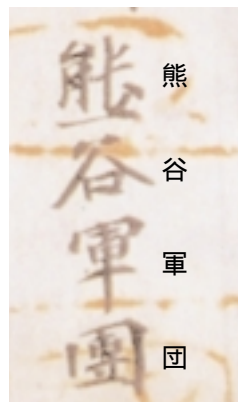 熊谷軍團
熊谷軍団